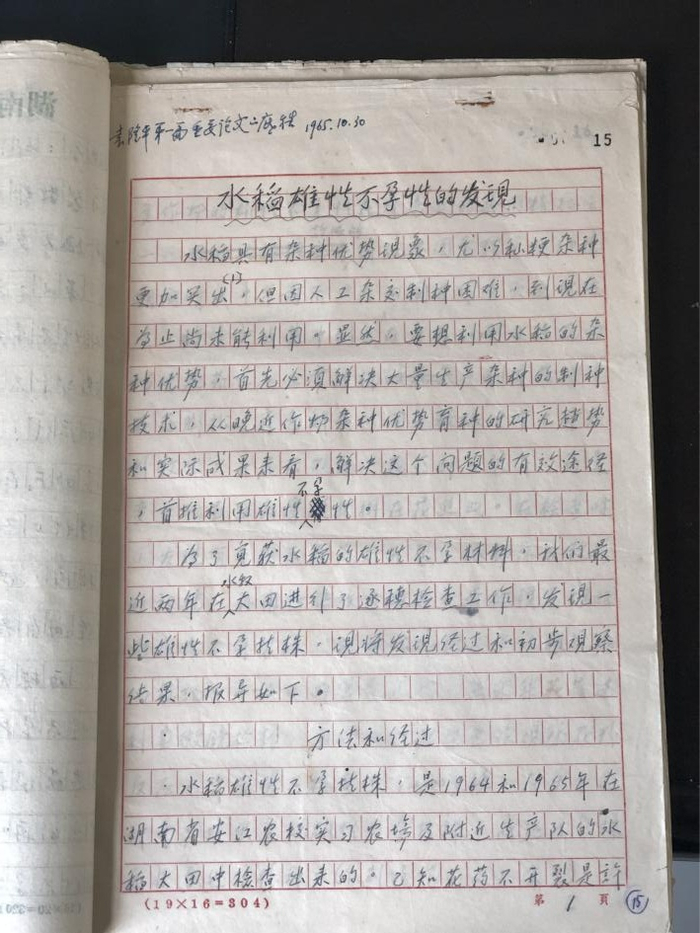 袁隆平第一篇重要论文之底稿 1965.10.30
15
水稻雄性不孕性的发现
水稻具有杂种优势现象，尤以籼粳杂种
更加突出(1)，但因人工杂交制种困难，到现在
为止尚未能利用。显然，要想利用水稻的杂
种优势，首先必须解决大量生产杂种的制种
技术，从晚近作物杂种优势育种的研究趋势
和实际成果来看，解决这个问题的有效途径
，首推利用雄性不孕性。
为了觅获水稻的雄性不孕材料，我们最
近两年在水稻大田进行了逐穗检查工作，发现一
些雄性不孕植株，现将发现经过和初步观察
结果，报导如下。
方法和经过
水稻雄性不孕植株，是1964和1965年在
湖南省安江农校实习农场及附近生产队的水
稻大田中检查出来的。已知花药不开裂是許
(19×16=304)
第 1 頁
15
湖南